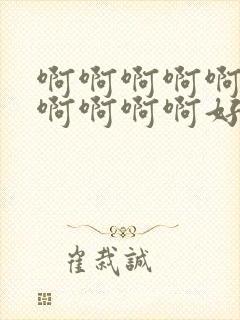 啊啊啊啊啊
啊啊啊啊好
崔栽誠